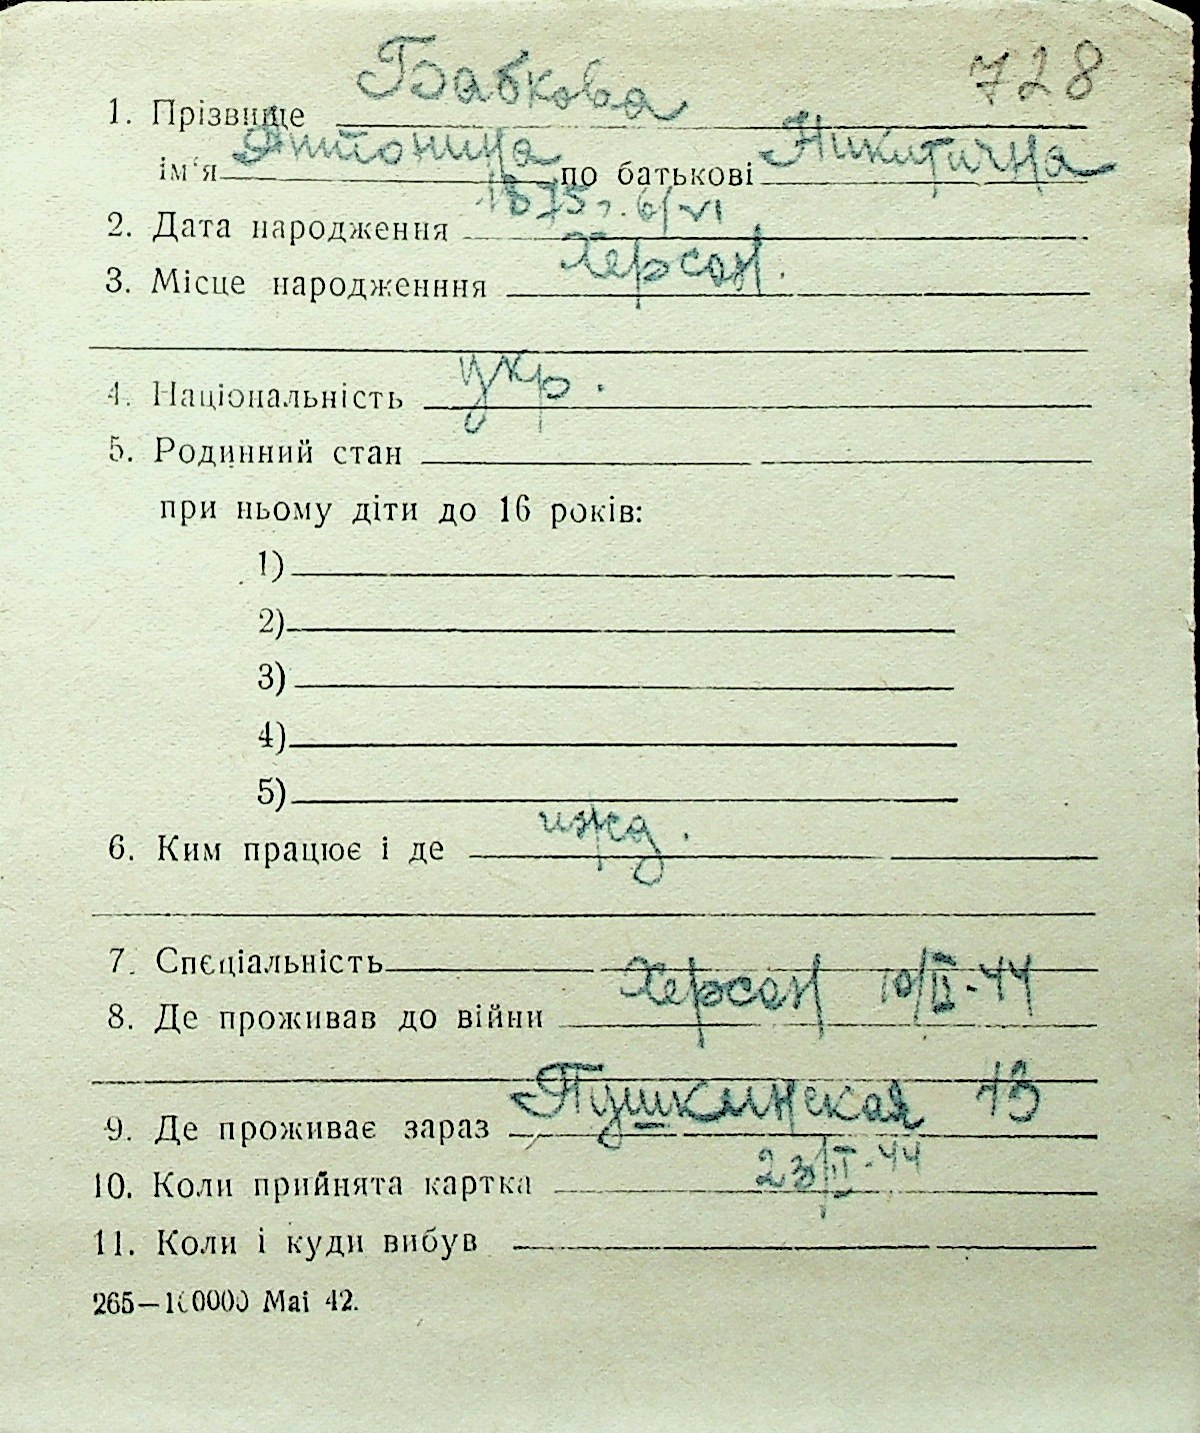 728
1. Прізвище Бабкова
ім'я Антонина по батькові Никитична
2. Дата народження 1875 г. 6/VI
3. Місце народженння Херсон.
4. Національність укр.
5. Родинний стан
при ньому діти до 16 років:
1)
2)
3)
4)
5)
6. Ким працює і де ижд.
7. Спеціальність
8. Де проживав до війни Херсон 10/II-44
9. Де проживає зараз Пушкинская 43
10. Коли прийнята картка 23/II-44
11. Коли і куди вибув
265—100000 Mai 42.